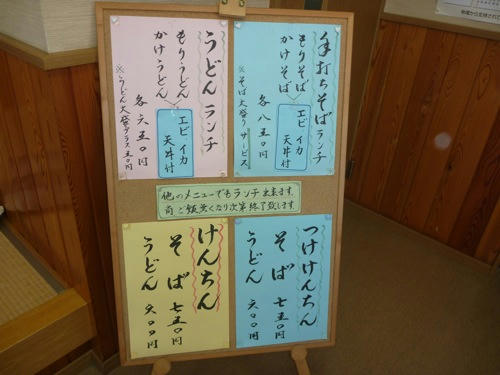 手打ちそばランチ
もりそば
かけそば
エビ イカ
天丼付
各 八五〇円
※そば大盛りサービス
うどんランチ
もりうどん
かけうどん
エビ イカ
天丼付
各 六五〇円
※うどん大盛プラス五〇円
他のメニューでもランチ出来ます。
尚ご飯無くなり次第終了致します。
つけけんちん
そば 七五〇円
うどん 六〇〇円
けんちん
そば 七五〇円
うどん 六〇〇円